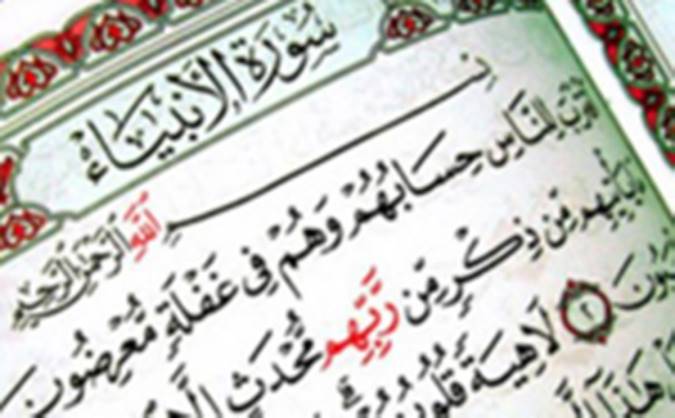 سُورَةُ الأَنبِيَاءِ
بِسْمِ اللَّهِ الرَّحْمَٰنِ الرَّحِيمِ
لِلنَّاسِ حِسَابُهُمْ وَهُمْ فِي غَفْلَةٍ مُّعْرِضُونَ
يَأْتِيهِم مِّن ذِكْرٍ مِّن رَّبِّهِم مُّحْدَثٍ
٢ لَاهِيَةً